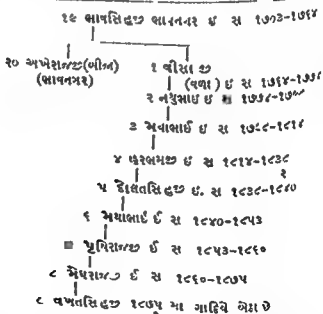 ૧૯ ભાવસિંહજી ભાવનગર ઇ સ ૧૭૦૩-૧૭૬૪
૨૦ અખેરાજજી(બીજા) ૧ વીસાજી
(ભાવનગર) (વળા) ઇ સ ૧૭૬૪-૧૭૭૪
૨ નથુભાઇ ઇ સ ૧૭૭૪-
૩ મઘાભાઇ ઇ સ ૧૭૯૮-૧૮૧૪
૪ હરભમજી ઇ સ ૧૮૧૪-૧૮૩૮
૨
૫ દોલતસિંહજી ઇ. સ ૧૮૩૮-૧૮૪૦
૬ મઘાભાઇ ઈ સ ૧૮૪૦-૧૮૫૩
પૃથિરાજજી ઈ સ ૧૮૫૩-૧૮૬૦
૮ મેઘરાજજી ઈ સ ૧૮૬૦-૧૮૭૫
૯ વખતસિંહજી ૧૮૭૫ મા ગાદિયે બેઠા છે